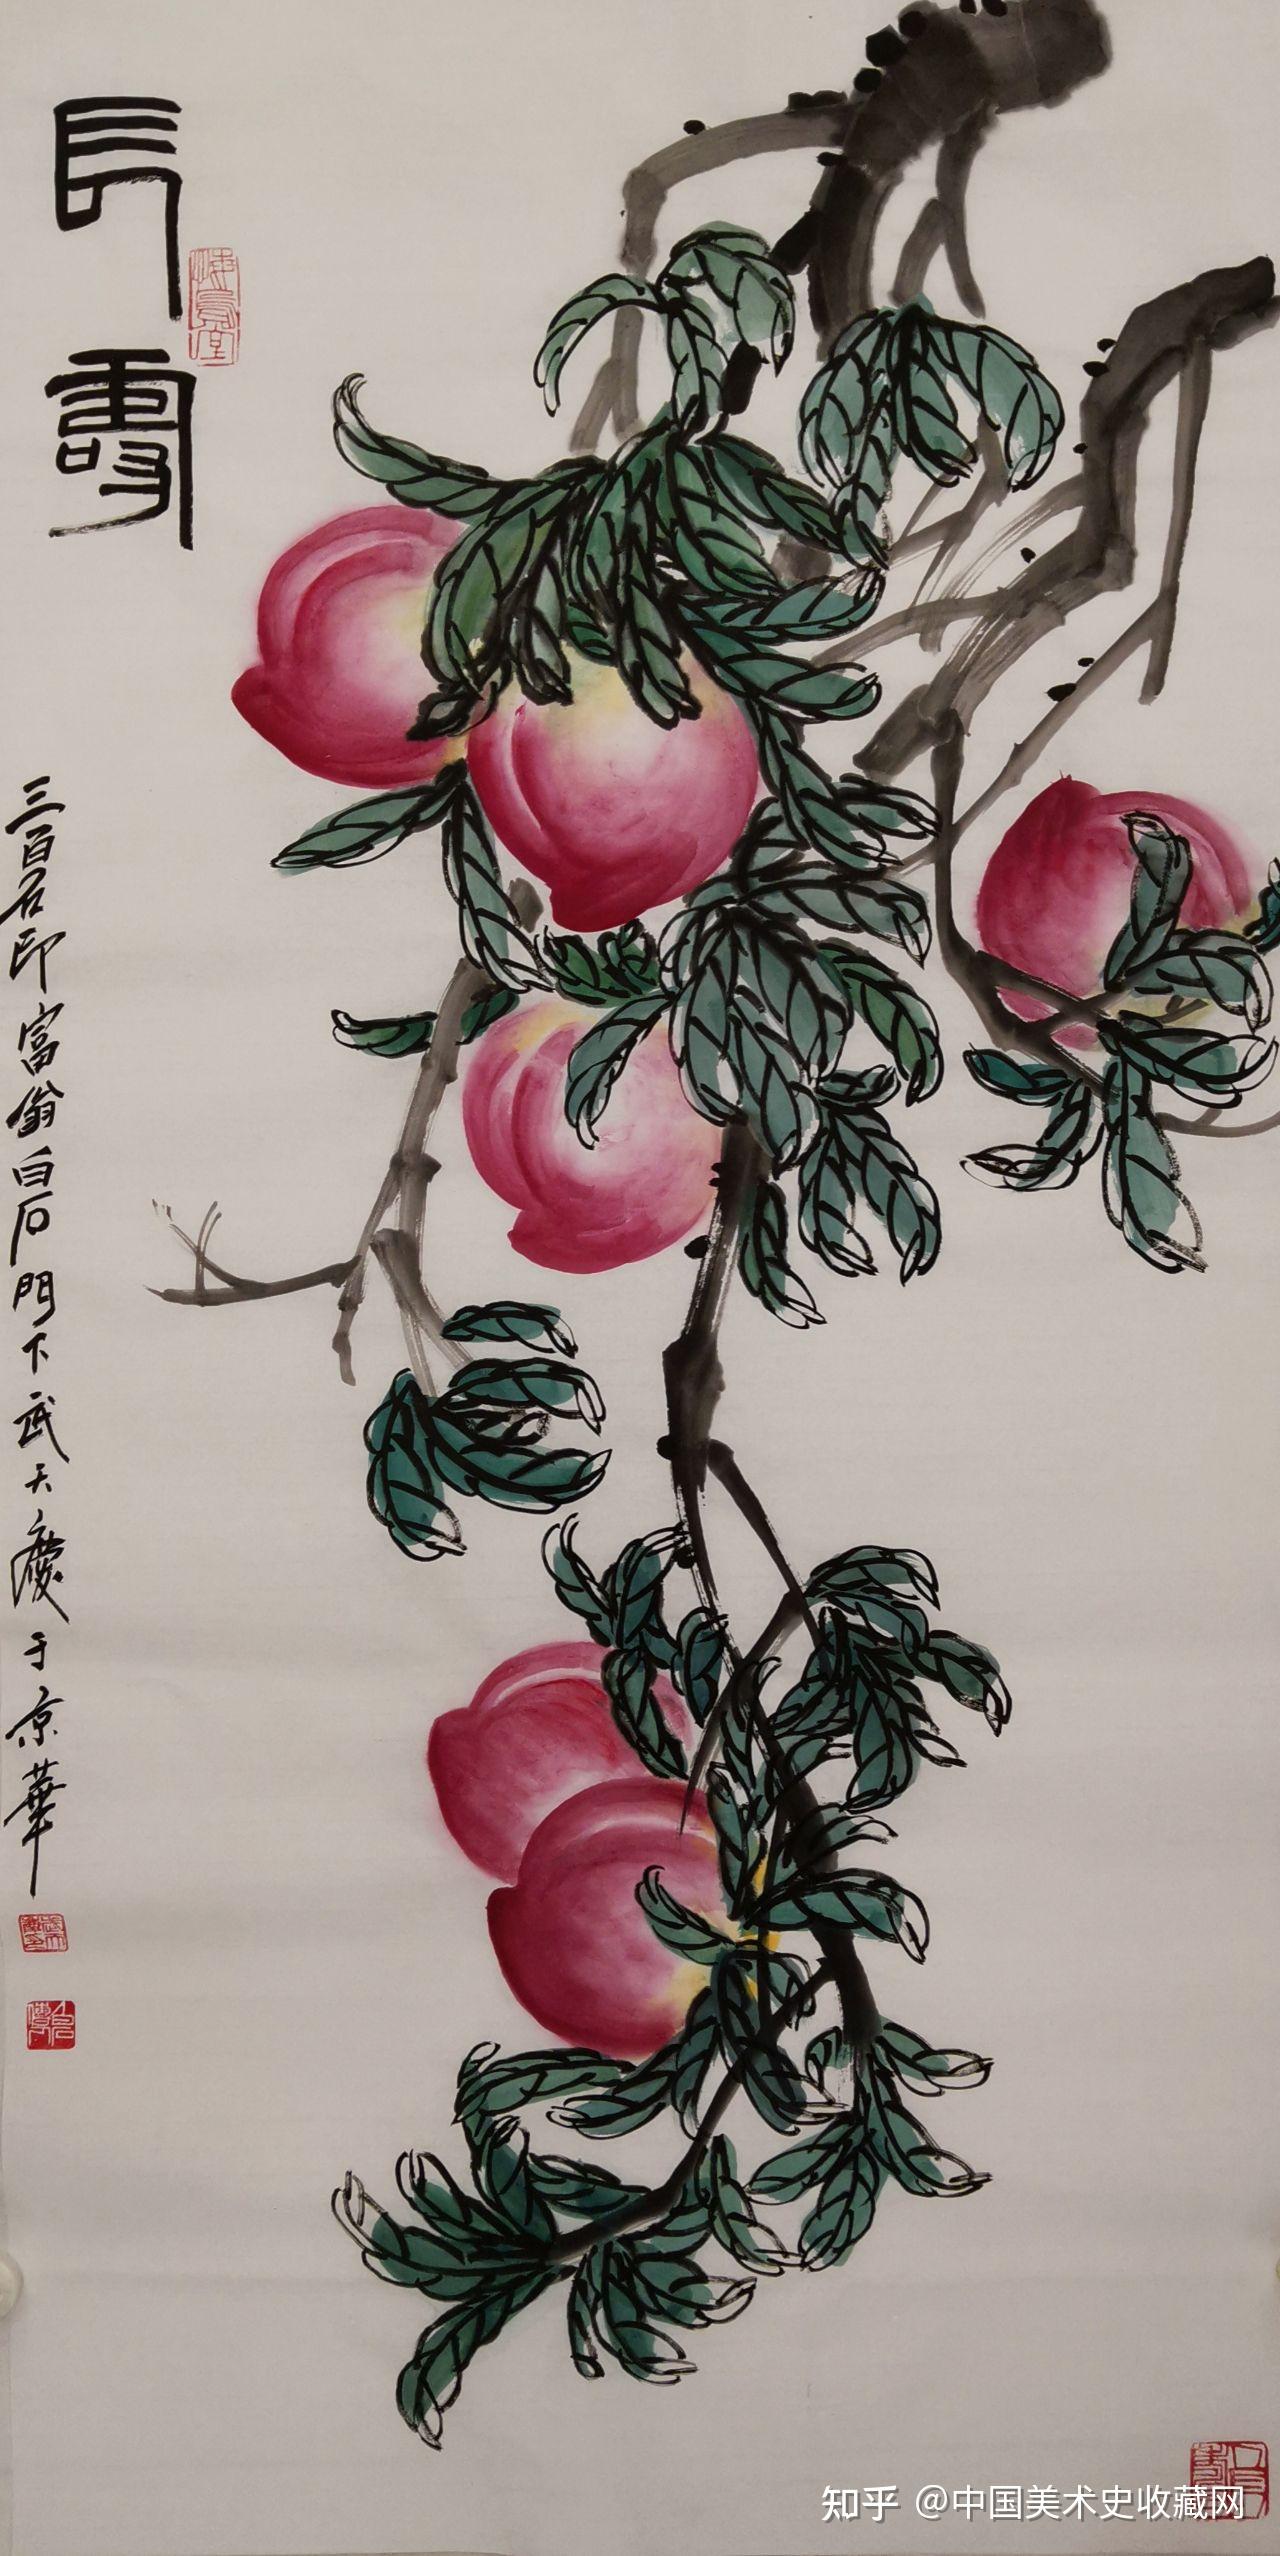 長壽
三百石印富翁白石門下武天慶于京華
知乎 @中国美术史收藏网